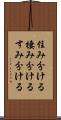 住み分ける
棲み分ける
すみ分ける